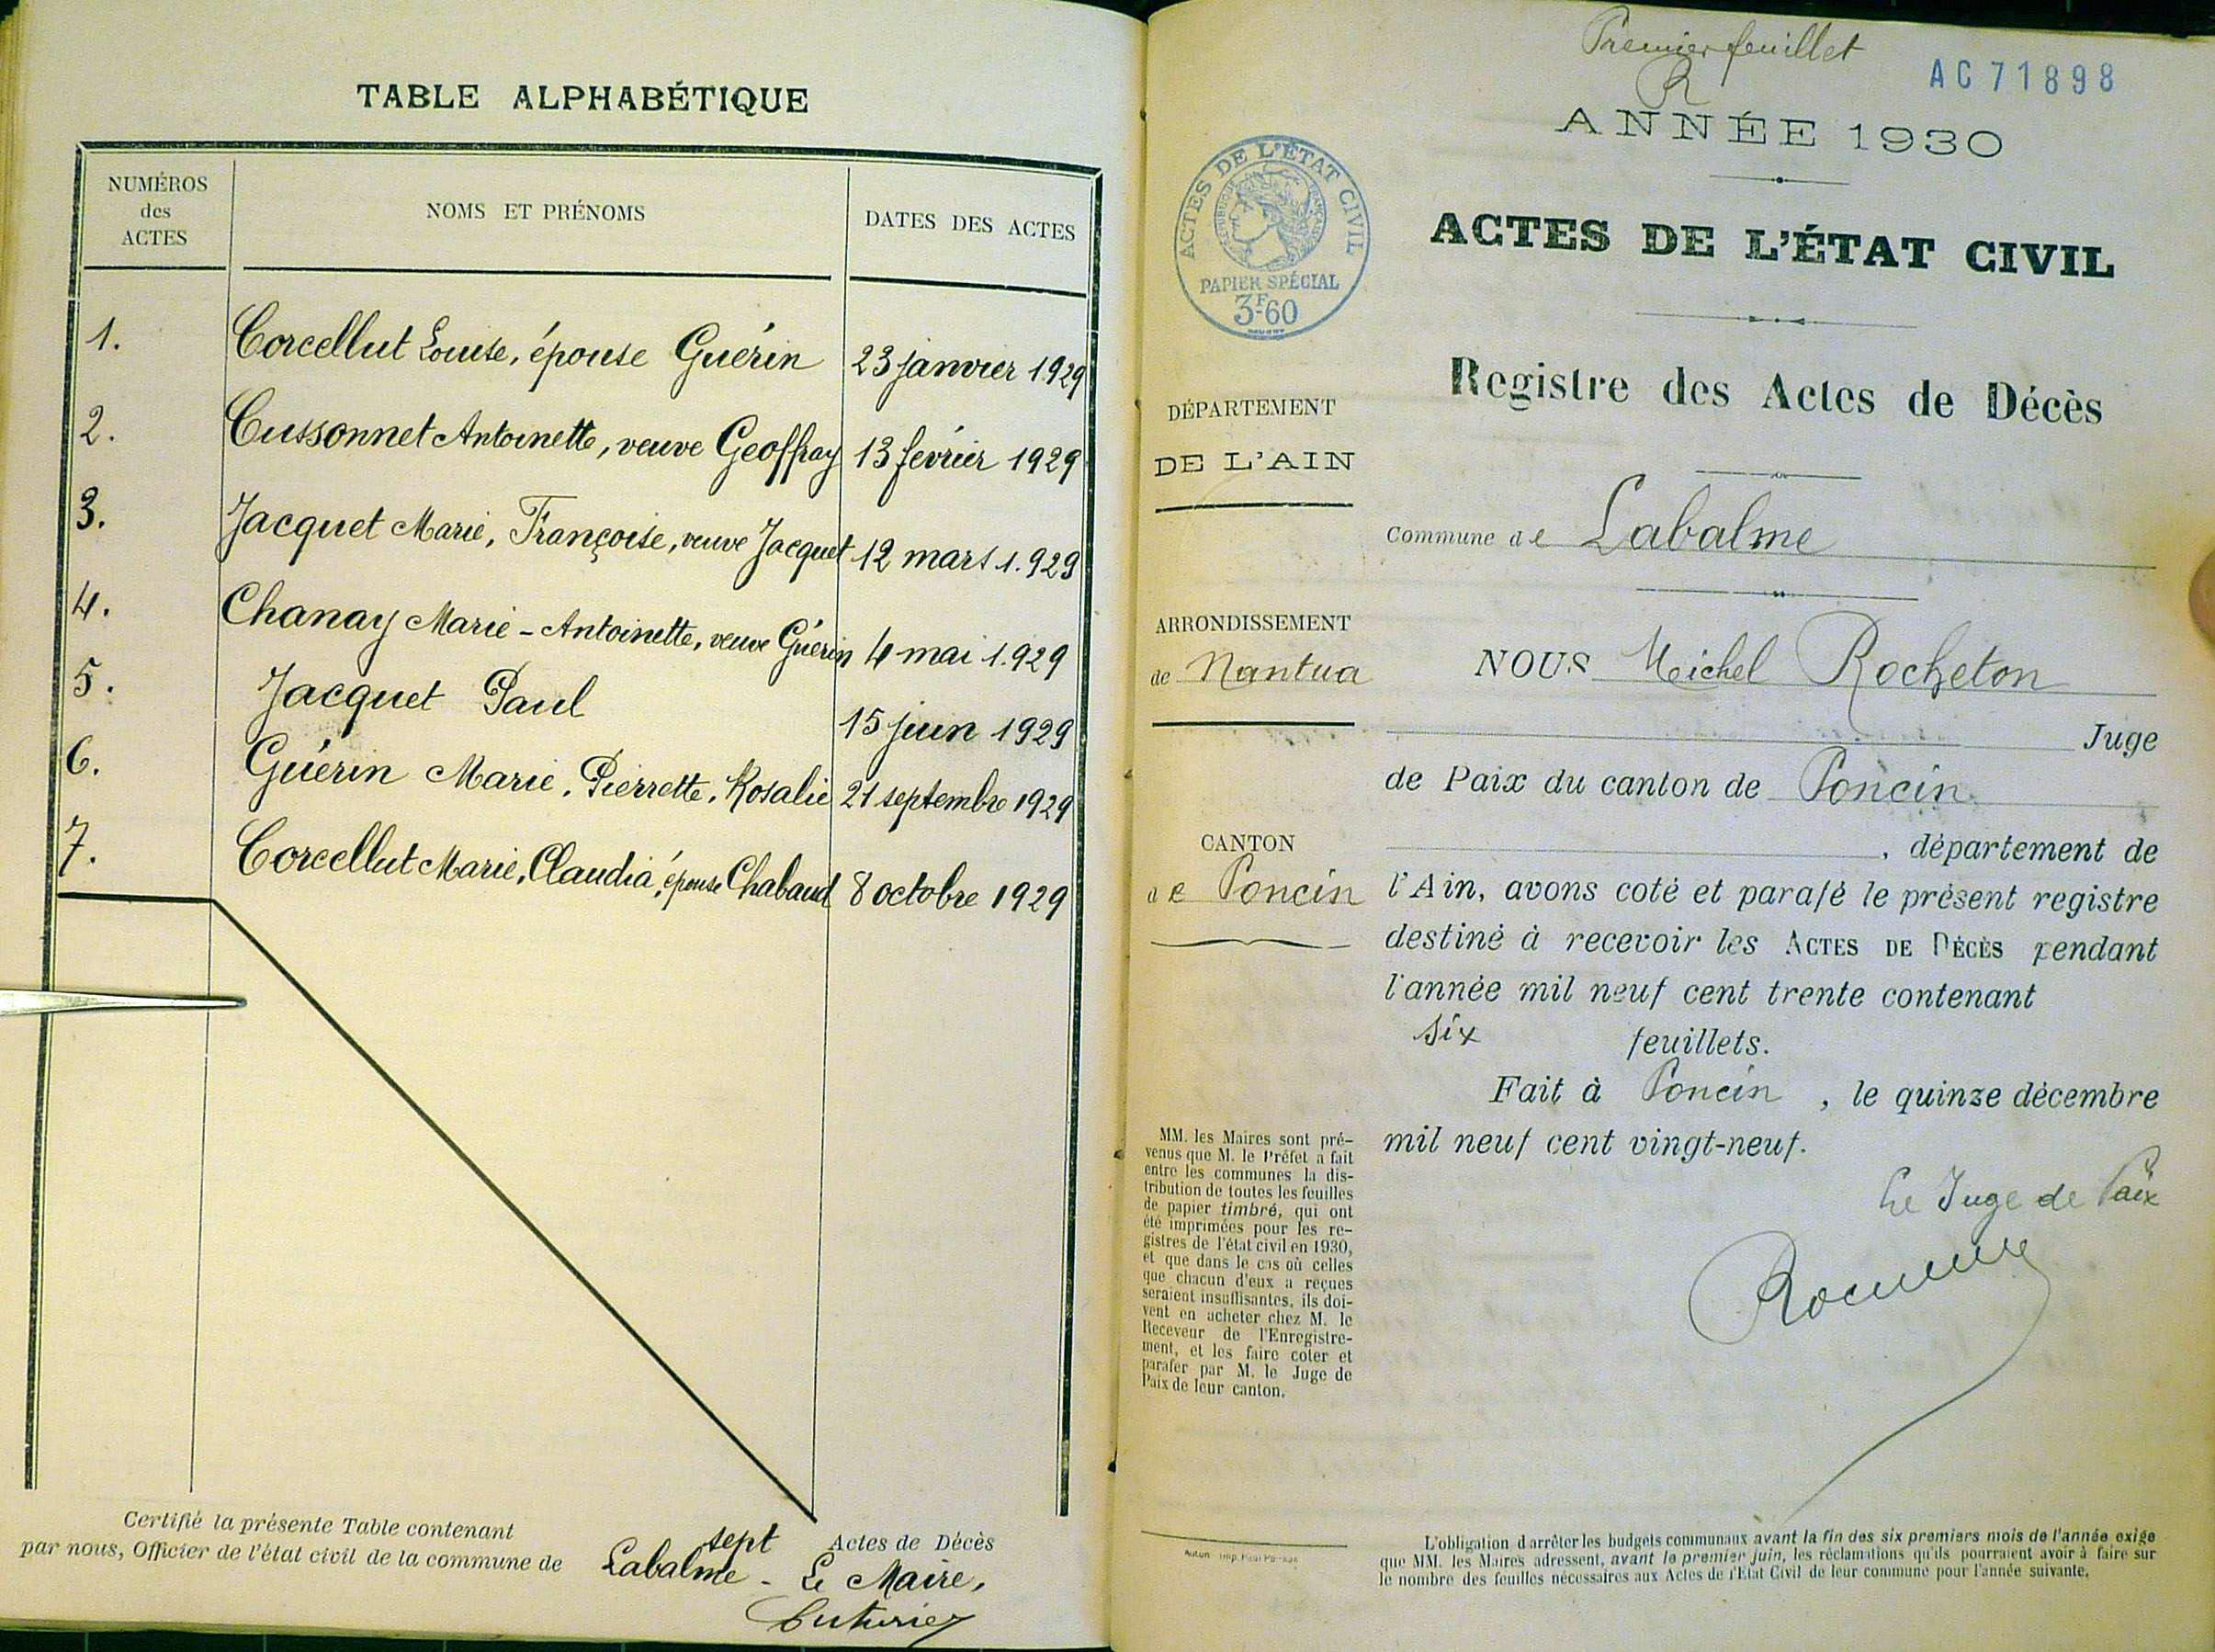 TABLE ALPHABÉTIQUE
NUMÉROS
des
ACTES
NOMS ET PRÉNOMS
DATES DES ACTES
1. Corcellut Louise, épouse Guérin 23 janvier 1929
2. Cussonnet Antoinette, veuve Geoffray 13 février 1929
3. Jacquet Marie, Françoise, veuve Jacquet 12 mars 1.929
4. Chanay Marie-Antoinette, veuve Guérin 4 mai 1.929
5. Jacquet Paul 15 juin 1929
6. Guérin Marie, Pierrette, Rosalie 21 septembre 1929
7. Corcellut Marie, Claudia, épouse Chabaud 8 octobre 1929
Certifié la présente Table contenant sept Actes de Décès
par nous, Officier de l'état civil de la commune de Labalme - Le Maire,
Premier feuillet
R
AC 71898
ANNÉE 1930
ACTES DE L'ÉTAT CIVIL
RÉPUBLIQUE FRANÇAISE
PAPIER SPÉCIAL
3F60
ACTES DE L'ÉTAT CIVIL
Registre des Actes de Décès
DÉPARTEMENT
DE L'AIN
Commune de Labalme
ARRONDISSEMENT
de Nantua
NOUS Michel Rocheton
Juge
de Paix du canton de Poncin
CANTON
de Poncin
, département de
l'Ain, avons coté et parafé le présent registre
destiné à recevoir les ACTES DE DÉCÈS pendant
l'année mil neuf cent trente contenant
six feuillets.
Fait à Poncin, le quinze décembre
mil neuf cent vingt-neuf.
Le Juge de Paix
MM. les Maires sont pré-
venus que M. le Préfet a fait
entre les communes la dis-
tribution de toutes les feuilles
de papier timbré, qui ont
été imprimées pour les re-
gistres de l'état civil en 1930,
et que dans le cas où celles
que chacun d'eux a reçues
seraient insuffisantes, ils doi-
vent en acheter chez M. le
Receveur de l'Enregistre-
ment, et les faire coter et
parafer par M. le Juge de
Paix de leur canton.
L'obligation d'arrêter les budgets communaux avant la fin des six premiers mois de l'année exige
que MM. les Maires adressent, avant le premier juin, les réclamations qu'ils pourraient avoir à faire sur
le nombre des feuilles nécessaires aux Actes de l'Etat Civil de leur commune pour l'année suivante.